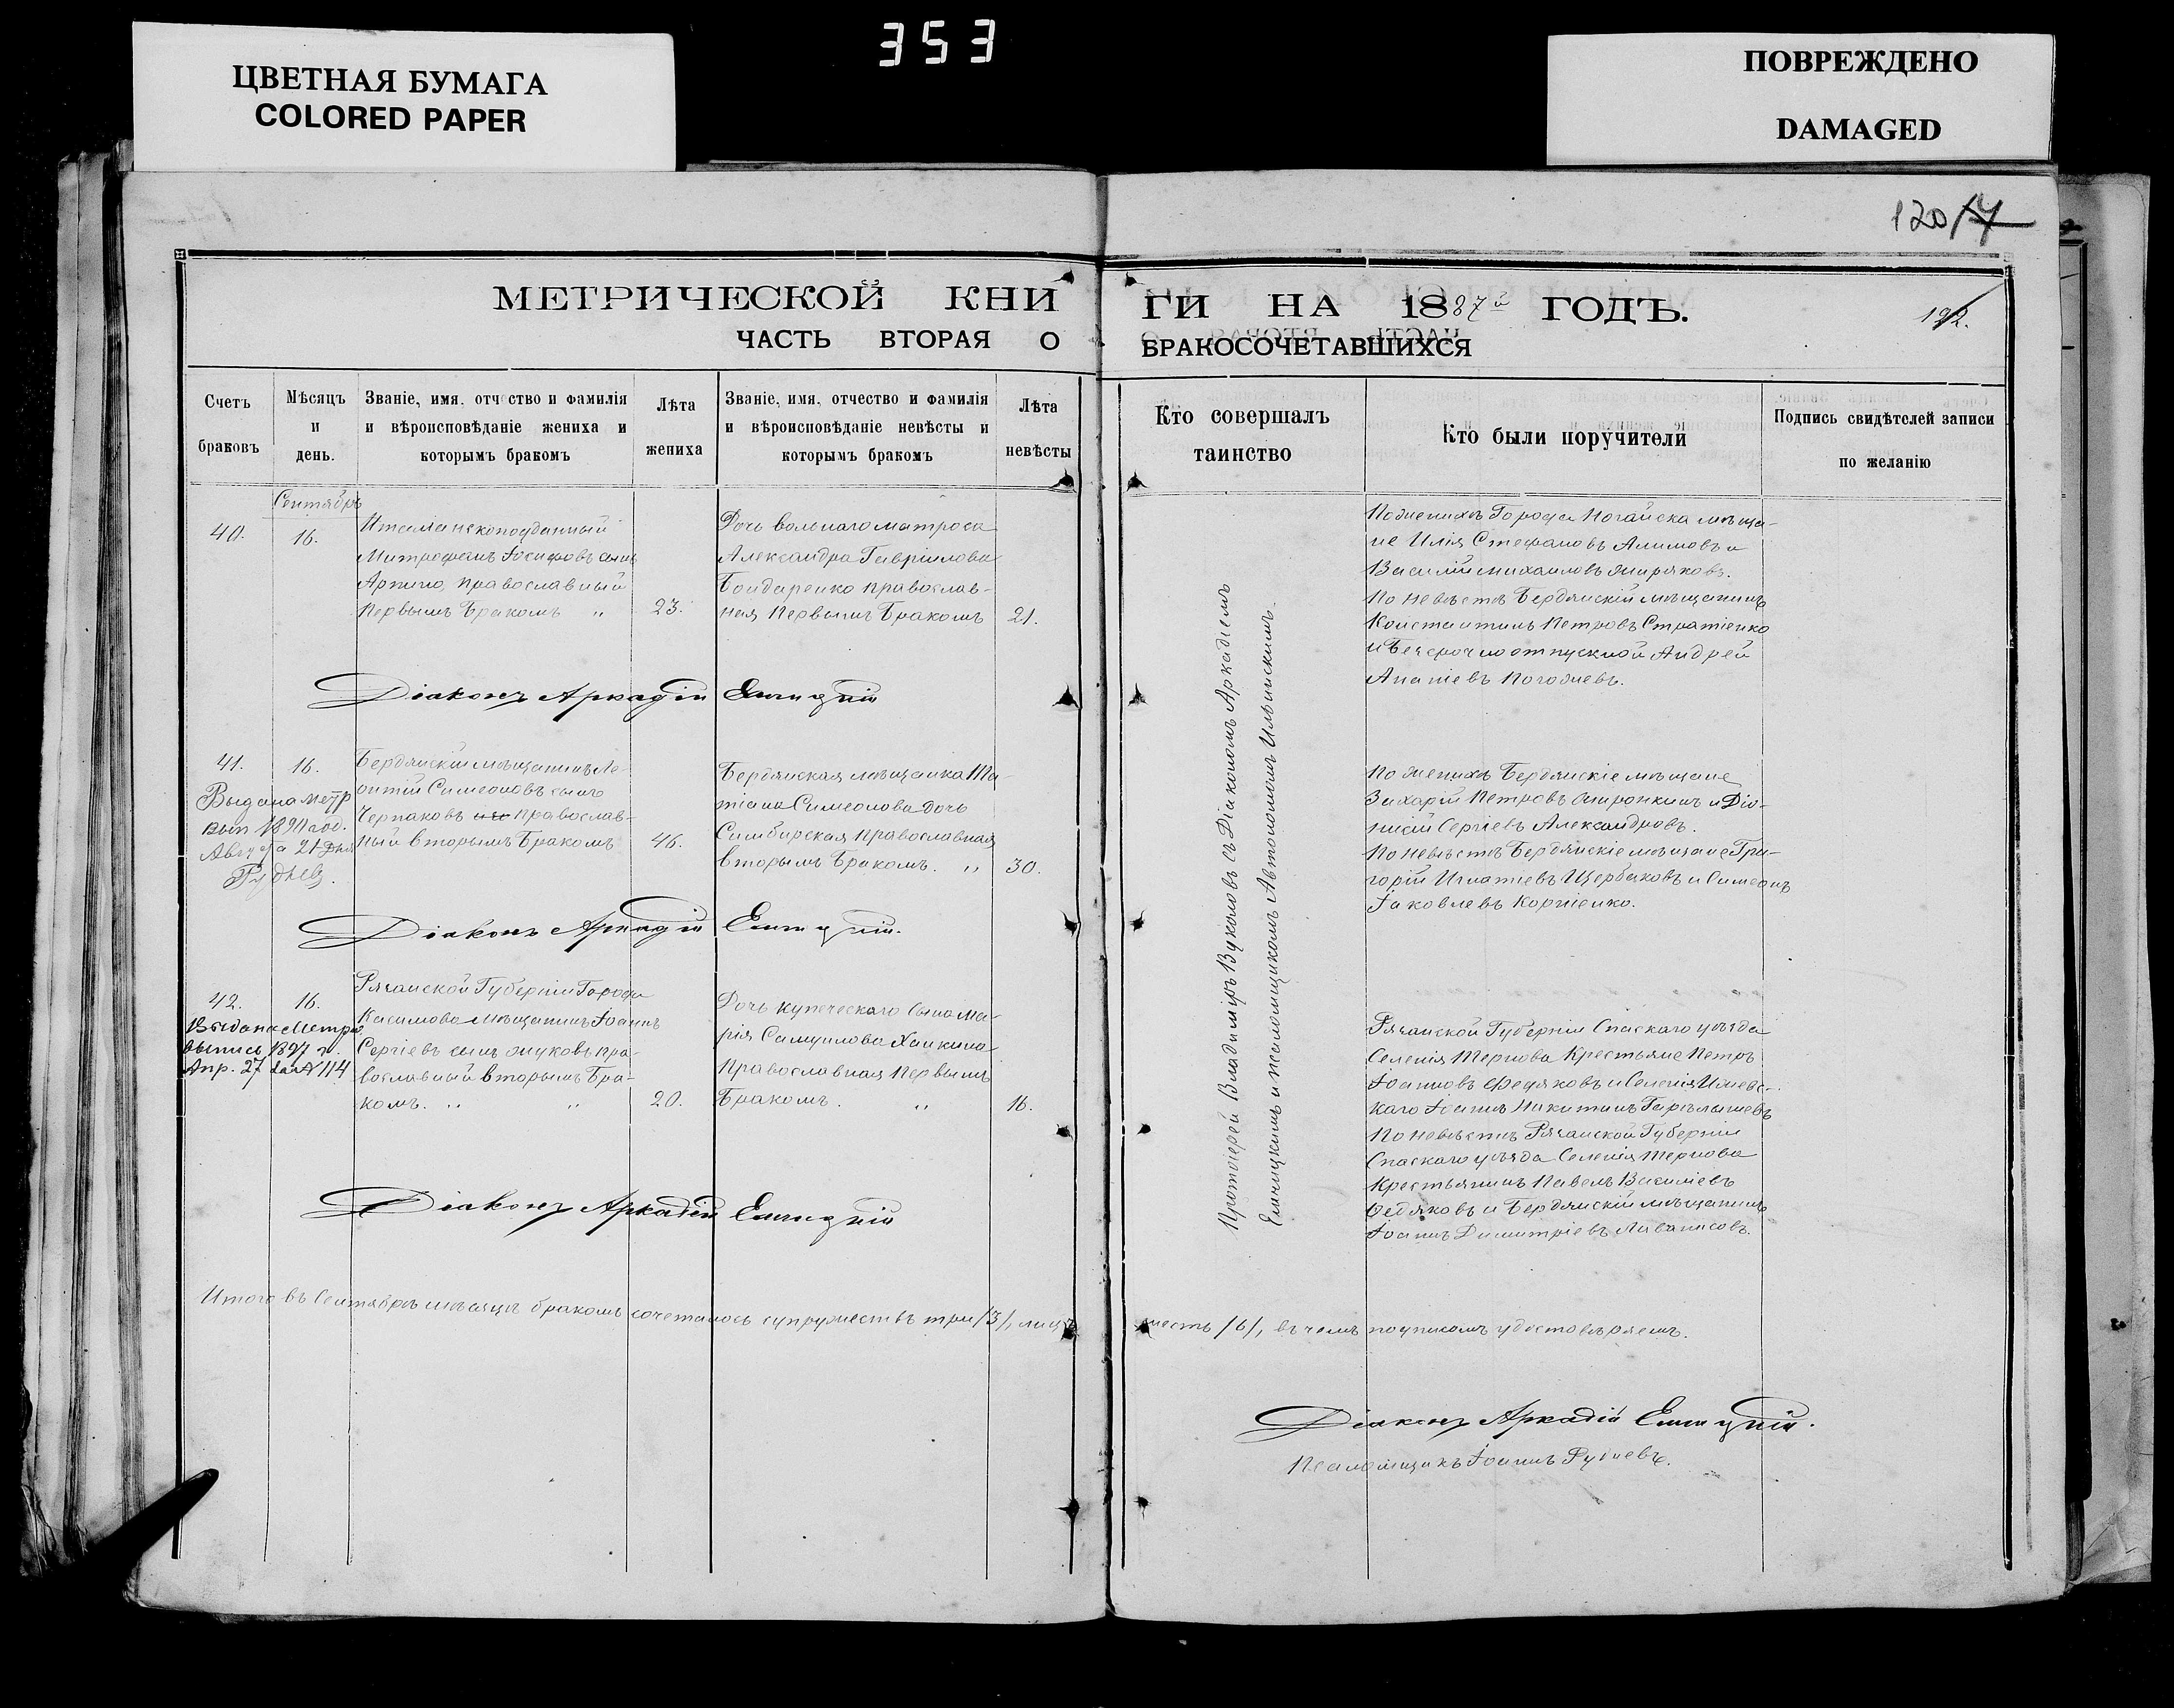 353
ЦВЕТНАЯ БУМАГА
COLORED PAPER
ПОВРЕЖДЕНО
DAMAGED
120
МЕТРИЧЕСКОЙ КНИ
ГИ НА 1887й ГОДЪ.
192.
ЧАСТЬ ВТОРАЯ О
БРАКОСОЧЕТАВШИХСЯ
Счетъ браковъ
Мѣсяцъ и день.
Званіе, имя, отчество и фамилія и вѣроисповѣданіе жениха и которымъ бракомъ
Лѣта жениха
Званіе, имя, отчество и фамилія и вѣроисповѣданіе невѣсты и которымъ бракомъ
Лѣта невѣсты
Кто совершалъ таинство
Кто были поручители
Подпись свидѣтелей записи по желанію
Сентябрь
40.
16.
Италіанскоподданный
Митрофанъ Іосифовъ сынъ
Арпино, православный
первымъ бракомъ „
23.
Дочь вольнаго матроса
Александра Гавріилова
Бондаренко православ-
ная первымъ бракомъ
21.
По женихѣ Города Ногайска мѣща-
не Илія Стефановъ Алимовъ и
Василій Михаиловъ
По невѣстѣ Бердянскій мѣщанинъ
Константинъ Петровъ Стратіенко
и Безсрочноотпускной Андрей
Ананіевъ Погожевъ.
Діаконъ Аркадій Елинецкій
41.
16.
Выдана метр
вып 1890 год.
Августа 21 дня
Руднев.
Бердянскій мѣщанинъ Ле-
онтій Симеоновъ сынъ
Черпаковъ православ-
ный вторымъ бракомъ
46.
Бердянская мѣщанка Та-
тіана Симеонова дочь
Симбирская православная
вторымъ бракомъ. „
30.
По женихѣ Бердянскіе мѣщане
Захарій Петровъ и Діо-
нисій Сергіевъ Александровъ.
По невѣстѣ Бердянскіе мѣщане Гри-
горій Игнатіевъ Щербаковъ и Симеонъ
Іаковлевъ Корніенко.
Діаконъ Аркадій Елинецкій.
42.
16.
Выдана Метр.
выпись 1897 г.
Апр. 27 за № 114
Рязанской Губерніи Города
Касимова мѣщанинъ Іоаннъ
Сергіевъ сынъ Жуковъ пра-
вославный вторымъ бра-
комъ. „ „
20.
Дочь купеческаго сына Ма-
рія Самуилова Ханкина
Православная первымъ
бракомъ. „
16.
Рязанской Губерніи Спаскаго уѣзда
Селенія Тернова Крестьяне Петръ
Іоанновъ Федяковъ и Селенія Ижевс-
каго Іоаннъ Никитинъ
По невѣстѣ Рязанской Губерніи
Спаскаго уѣзда Селенія Тернова
Крестьянинъ Павелъ Василіевъ
Федяковъ и Бердянскій мѣщанинъ
Іоаннъ Димитріевъ
Діаконъ Аркадій Елинецкій
Протоіерей Владиміръ Вуколовъ съ Діакономъ Аркадіемъ
Елинецкимъ и псаломщикомъ Автономомъ Ильинскимъ.
Итого въ Сентябрѣ мѣсяцѣ бракомъ сочеталось супружествъ три /3/, лицъ
шесть /6/, въ чемъ подписомъ удостовѣряемъ.
Діаконъ Аркадій Елинецкій.
Псаломщикъ Іоаннъ Рудневъ.